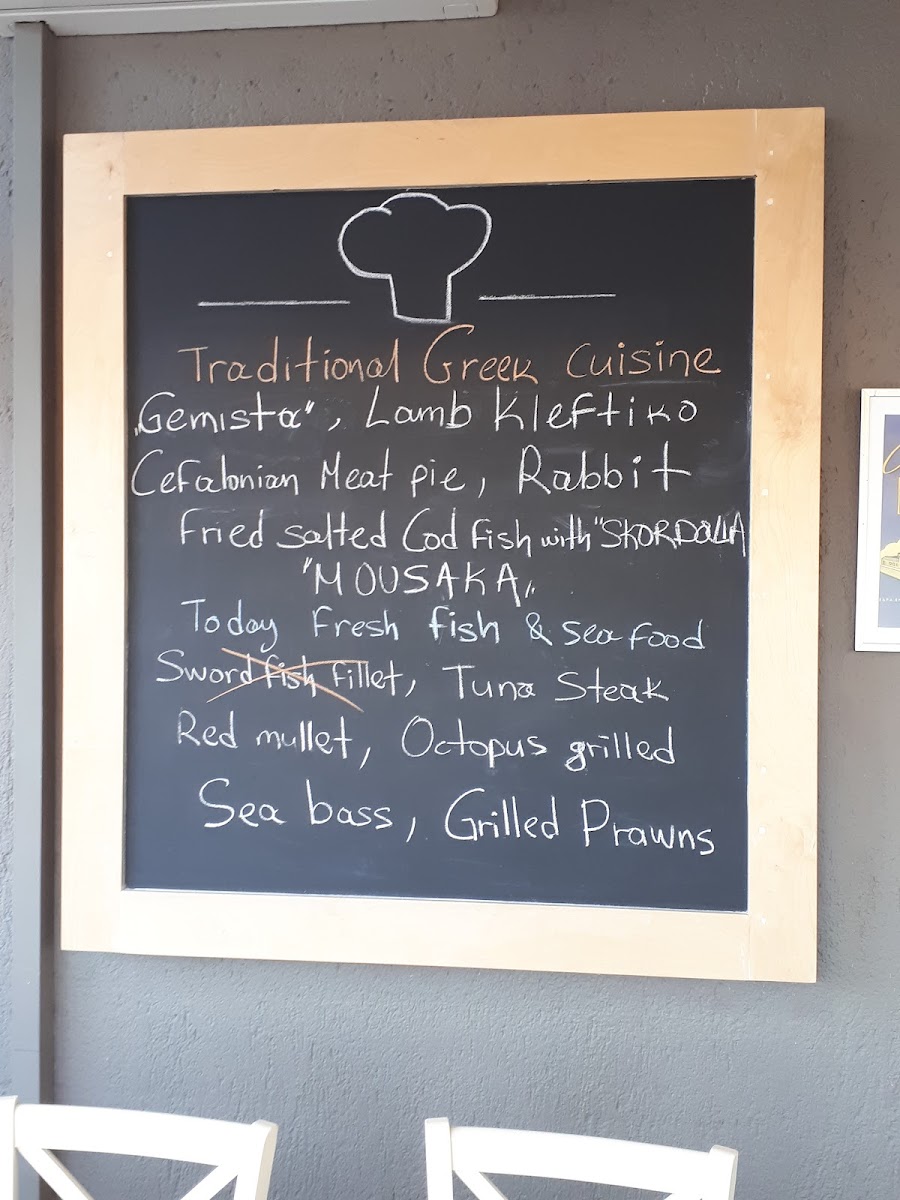 Traditional Greek Cuisine
„Gemista", Lamb Kleftiko
Cefalonian Meat pie, Rabbit
Fried salted Cod fish with "SKORDALIA
"MOUSAKA„
Today Fresh fish & sea food
Sword fish fillet, Tuna Steak
Red mullet, Octopus grilled
Sea bass, Grilled Prawns